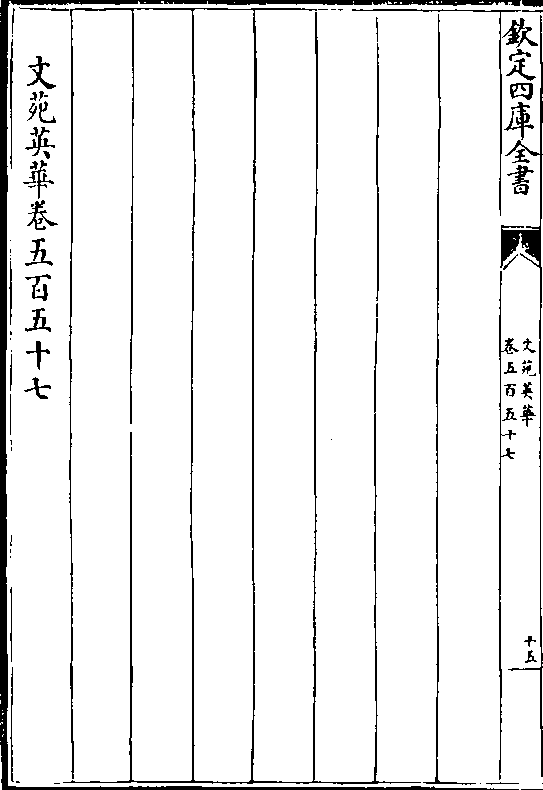 欽定四庫全書
文苑英華
卷五百五十七
十五
文苑英華卷五百五十七